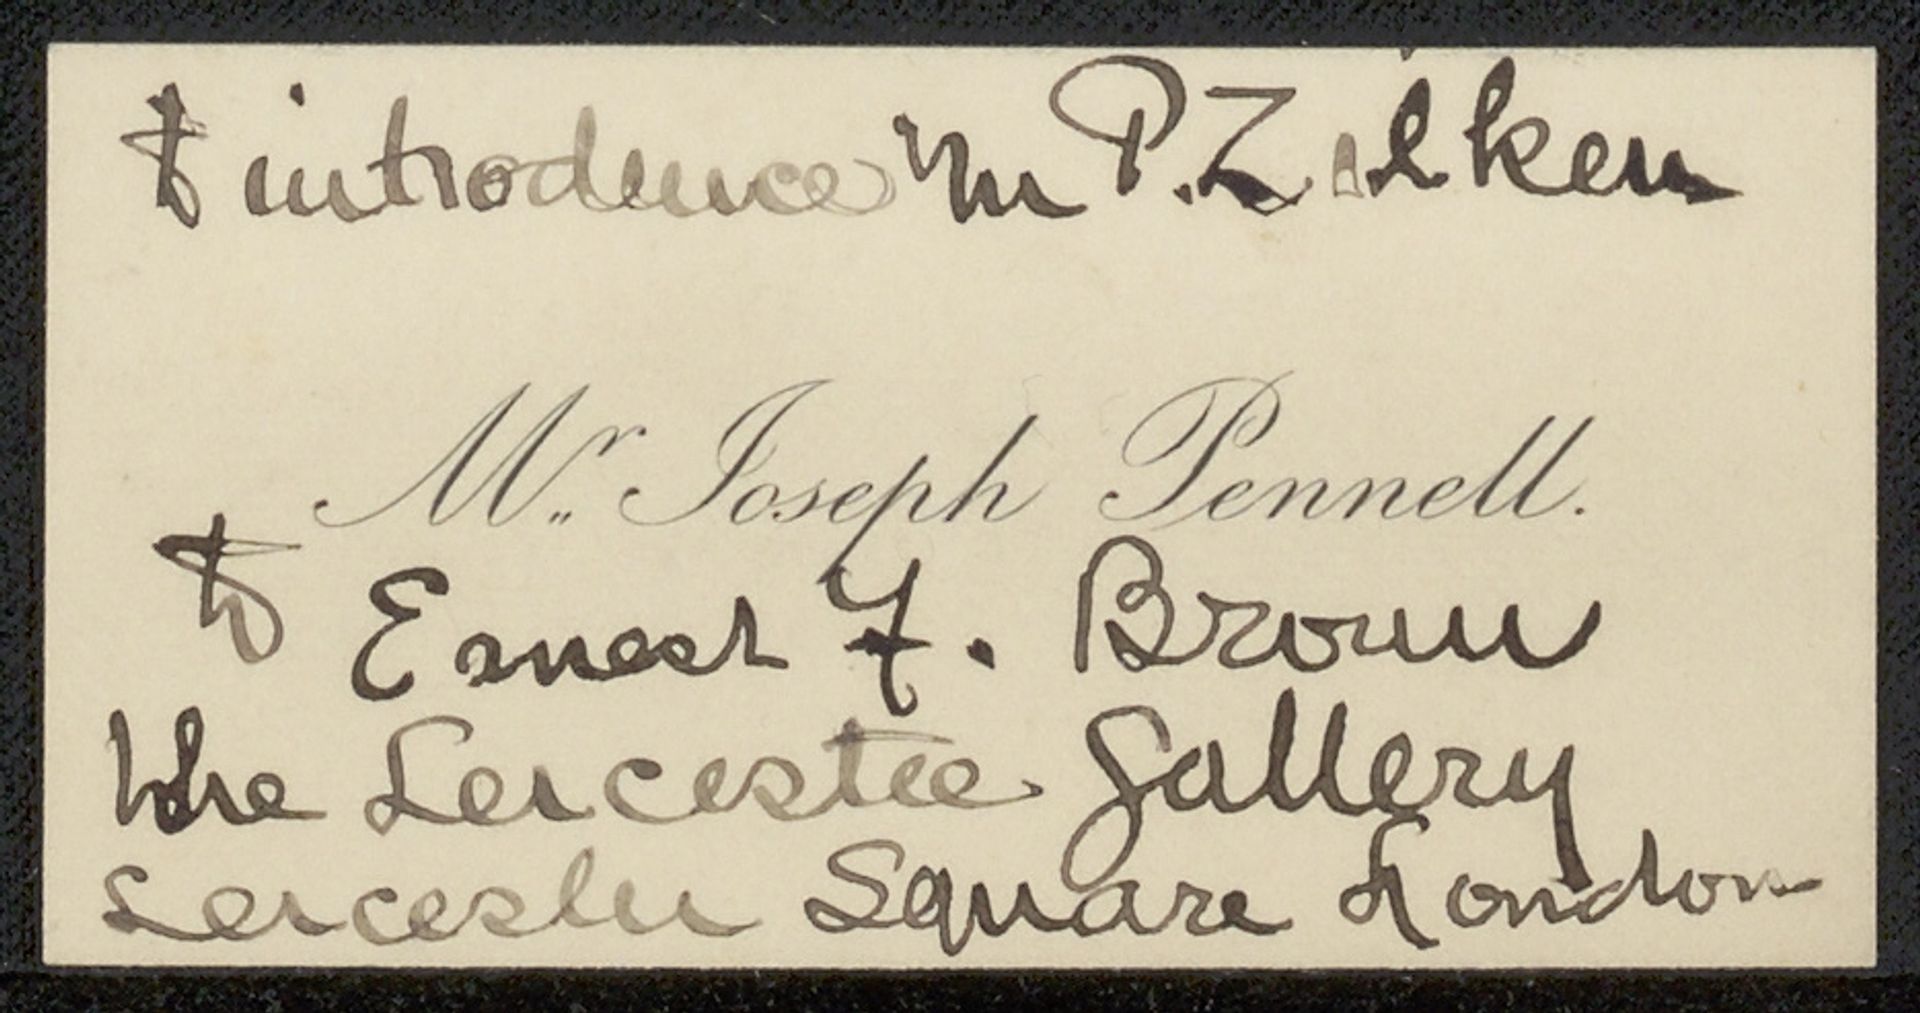 to introduce Mr P. Zilken
Mr. Joseph Pennell.
to Ernest F. Brown
the Leicester Gallery
Leicester Square London